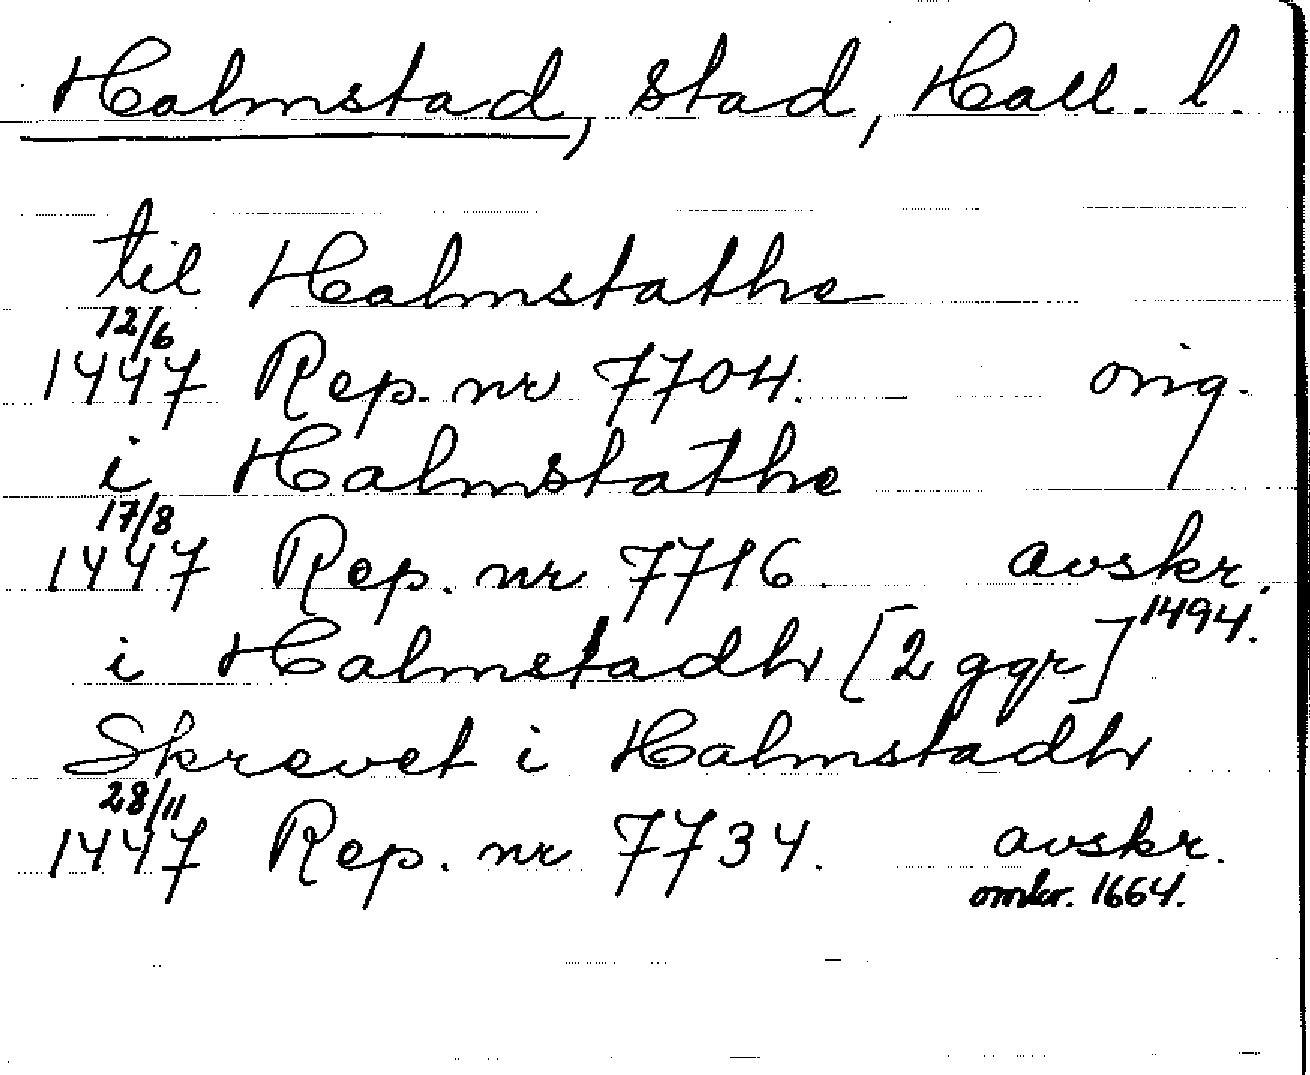 Halmstad, stad, Hall. l.
til Halmstathe
12/6
1447 Rep. nr 7704. orig.
i Halmstathe
17/8
1447 Rep. nr 7716. avskr.
1494.
i Halmstadh [2 ggr]
Skrevet i Halmstadh
28/11
1447 Rep. nr 7734. avskr.
omkr. 1664.